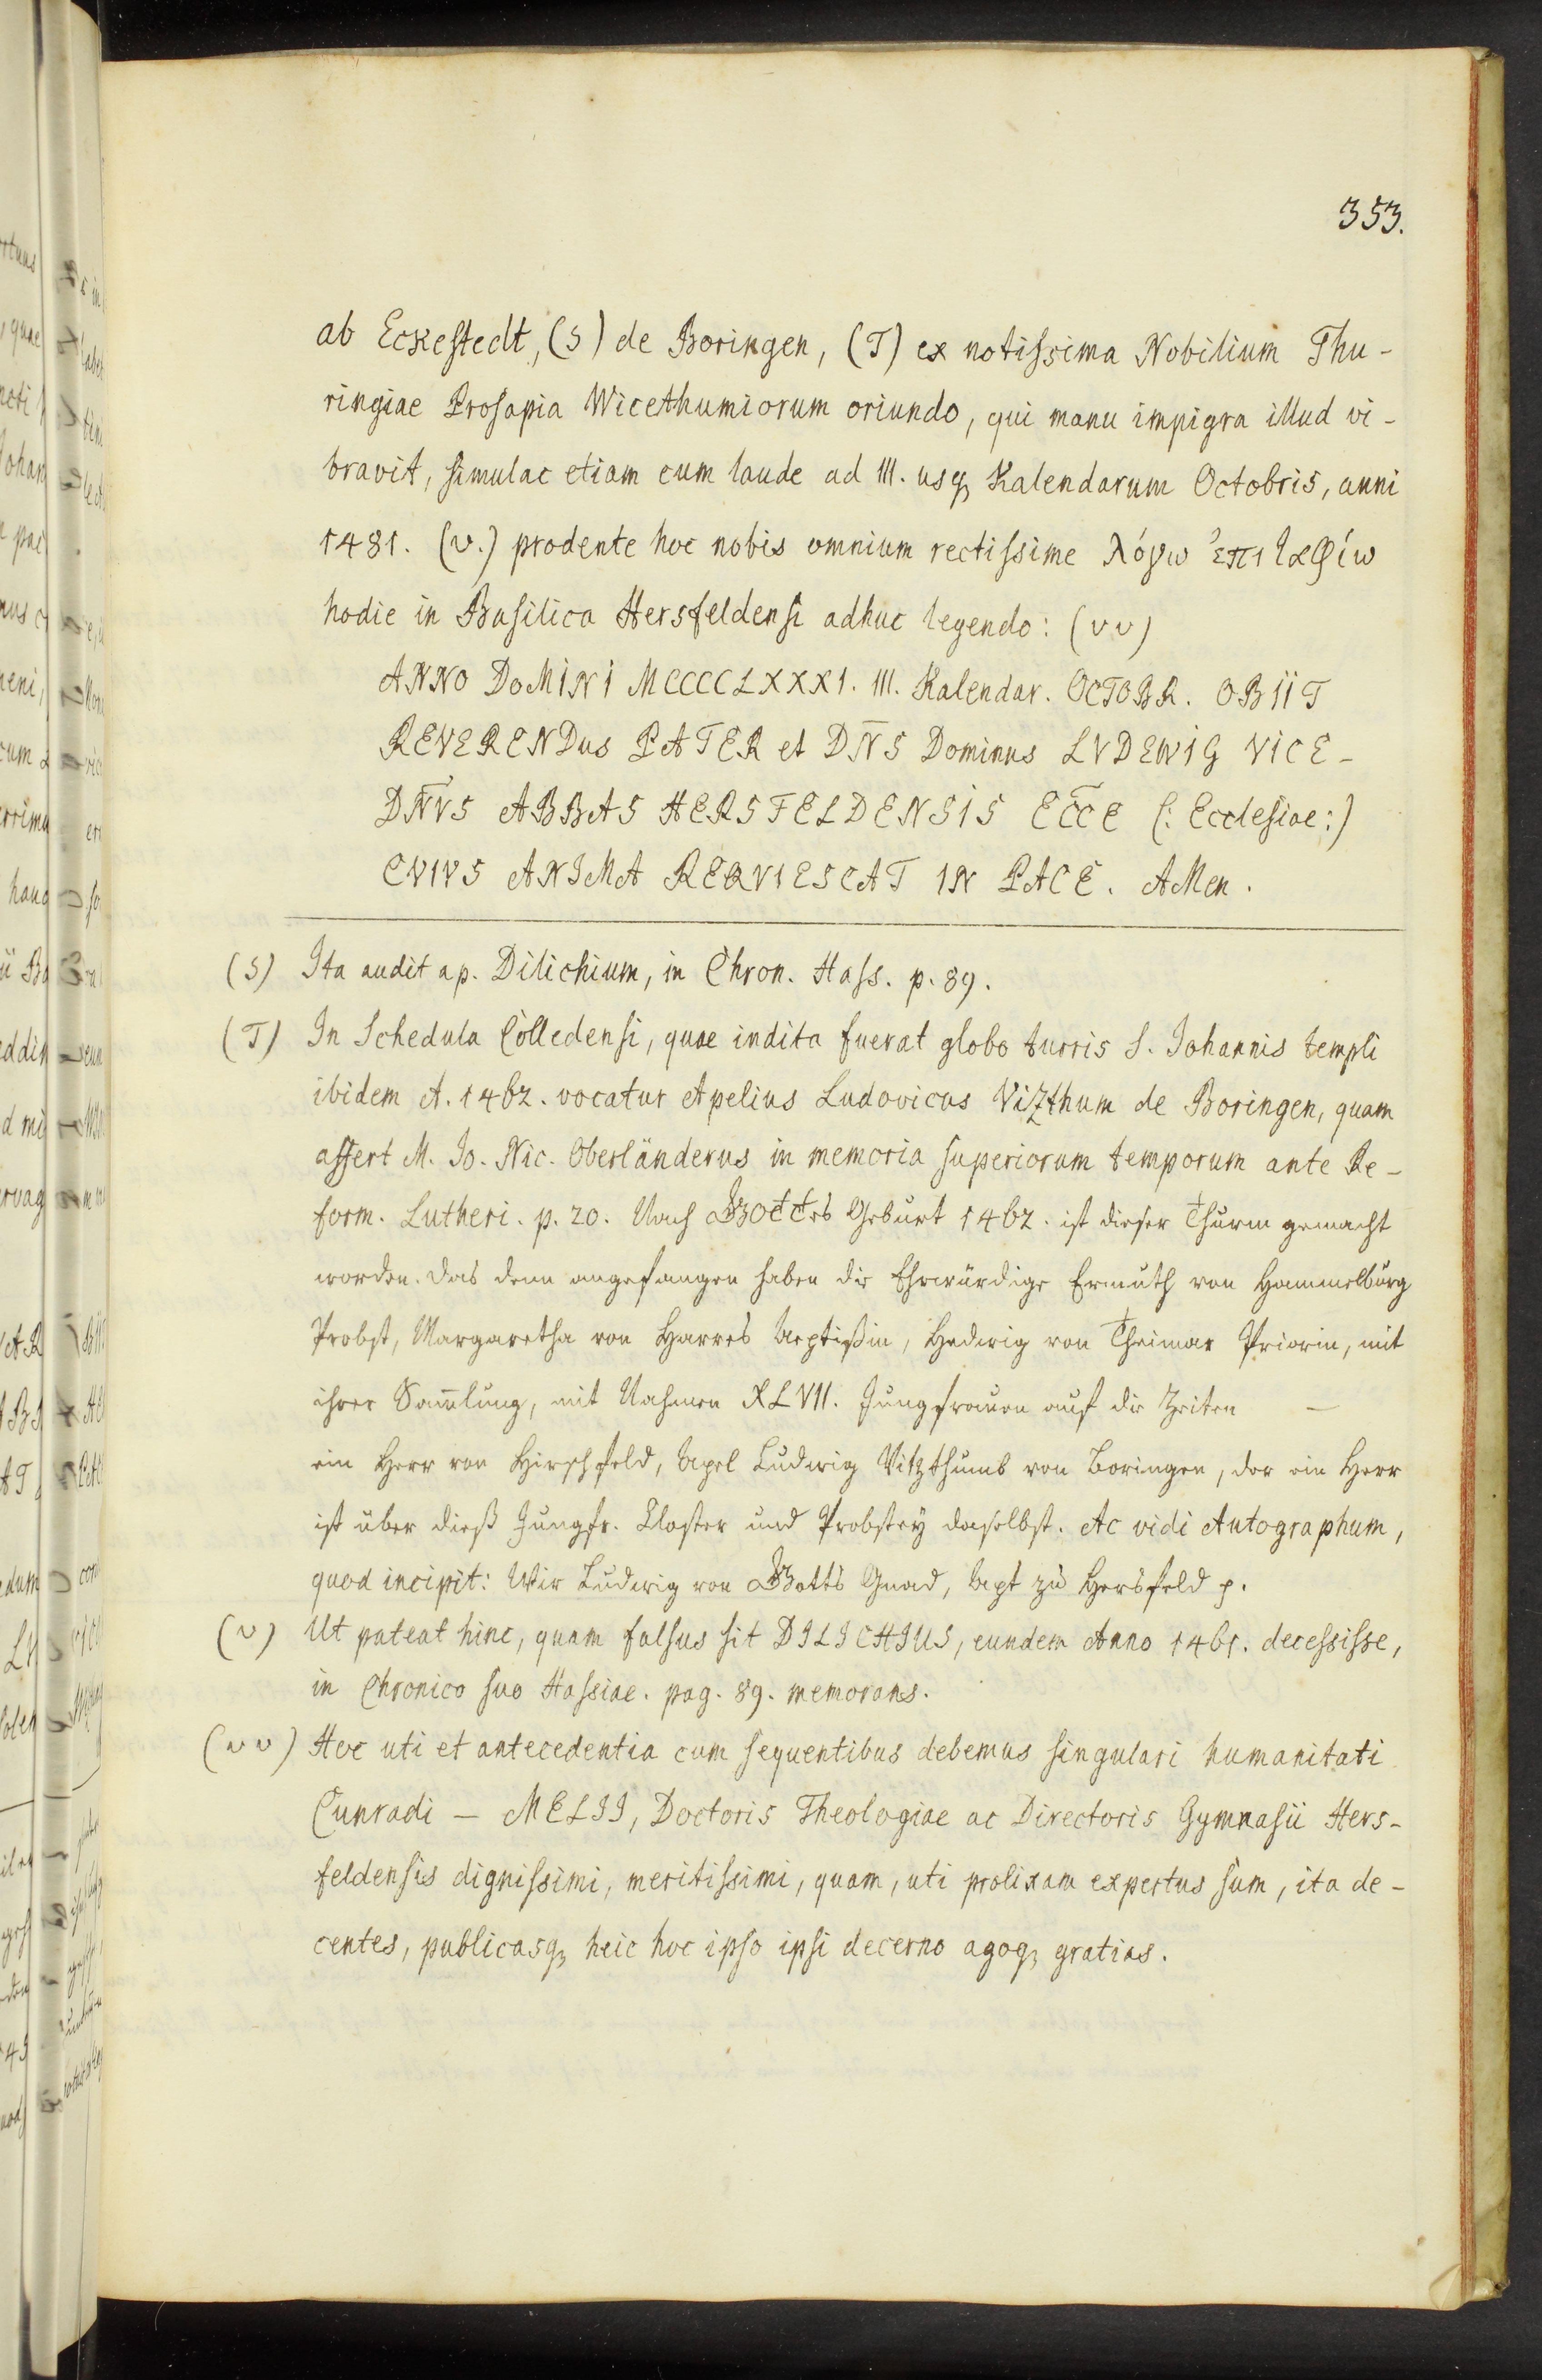 353.
ab Eckestedt, (S) de Boringen, (T) ex notissima Nobilium Thu-
ringiae Prosapia Wicethumiorum oriundo, qui manu impigra illud vi-
bravit, simulac etiam cum laude ad III. usq; Kalendarum Octobris, anni
1481. (v.) prodente hoc nobis omnium rectissime λόγω ἐπιταφίω
hodie in Basilica Hersfeldensi adhuc legendo: (vv)
ANNO DoMiNi MCCCCLXXXI. III. Kalendar. OCTOBR. OBiiT
REVERENDus PATER et DN̄S Dominus LVDEWiG ViCE-
DN̄VS ABBAS HERSFELDENSiS EC̄CE (: Ecclesiae:)
CVIVS ANIMA REQVIESCAT IN PACE. AMen.
(S) Ita audit ap. Dilichium, in Chron. Hass. p. 89.
(T) In Schedula Cölledensi, quae indita fuerat globo turris S. Johannis templi
ibidem A. 1462. vocatur Apelius Ludovicus Vizthum de Boringen, quam
affert M. Jo. Nic. Oberländerus in memoria superiorum temporum ante Re-
form. Lutheri. p. 20. Nach GOttes Geburt 1462. ist dieser Thurm gemacht
worden. das denn angefangen haben die Ehrwürdige Ermuth von Hammelburg
Probst, Margaretha von Harres Aeptißin, Hedwig von Theimar Priorin, mit
ihrer Sam̄lung, mit Nahmen XLVII. Jungfrauen auf die Zeiten —
ein Herr von Hirschfeld, Apel Ludwig Vitzthumb von Boringen, der ein Herr
ist über dieß Jungfr. Closter und Probstey daselbst. Ac vidi Autographum,
quod incipit: Wir Ludwig von Gotts Gnad, Apt zu Hersfeld p.
(v) Ut pateat hinc, quam falsus sit DILICHIUS, eundem Anno 1461. decessisse,
in Chronico suo Hassiae. pag. 89. memorans.
(vv) Hoc uti et antecedentia cum sequentibus debemus singulari humanitati
Cunradi — MELII, Doctoris Theologiae ac Directoris Gymnasii Hers-
feldensis dignissimi, meritissimi, quam, uti prolixam expertus sum, ita de-
centes, publicasq; heic hoc ipso ipsi decerno agoq; gratias.